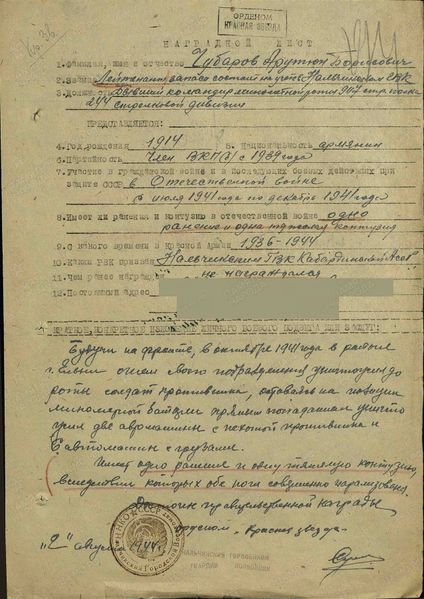 ОРДЕНОМ
КРАСНАЯ ЗВЕЗДА
НАГРАДНОЙ ЛИСТ
1. Фамилия, имя и отчество Чубаров Арутюн Борисович
2. Звание Лейтенант запаса состоит на учете Нальчикском ГВК
3. Должность Бывший командир минометной роты 907 стр. полка
244 стрелковой дивизии
ПРЕДСТАВЛЯЕТСЯ:
4. Год рождения 1914 5. Национальность армянин
6. Партийность Член ВКП(б) с 1939 года
7. Участие в гражданской войне и в последующих боевых действиях при
защите СССР в Отечественной войне
с июля 1941 года по декабрь 1941 года
8. Имеет ли ранения и контузии в отечественной войне одно
ранение и одна тяжелая контузия
9. С какого времени в Красной Армии 1936-1944
10. Каким РВК призван Нальчикским ГВК Кабардинской АССР
11. Чем ранее награжден не награждался
12. Постоянный адрес
КРАТКОЕ, КОНКРЕТНОЕ ИЗЛОЖЕНИЕ ЛИЧНОГО БОЕВОГО ПОДВИГА ИЛИ ЗАСЛУГ:
Будучи на фронте, в октябре 1941 года в районе
г. Ельни огнем своего подразделения уничтожил до
роты солдат противника, оставаясь на позиции
минометной батареи прямым попаданием уничто
жил две автомашины с пехотой противника и
6 автомашин с грузами.
Имеет одно ранение и одну тяжелую контузию,
вследствии которых обе ноги совершенно парализованы.
Достоин правительственной награды
орденом "Красная звезда"
"2" августа 1944 г.
НАЛЬЧИКСКИЙ ГОРВОЕНКОМ
ГВАРДИИ ПОЛКОВНИК